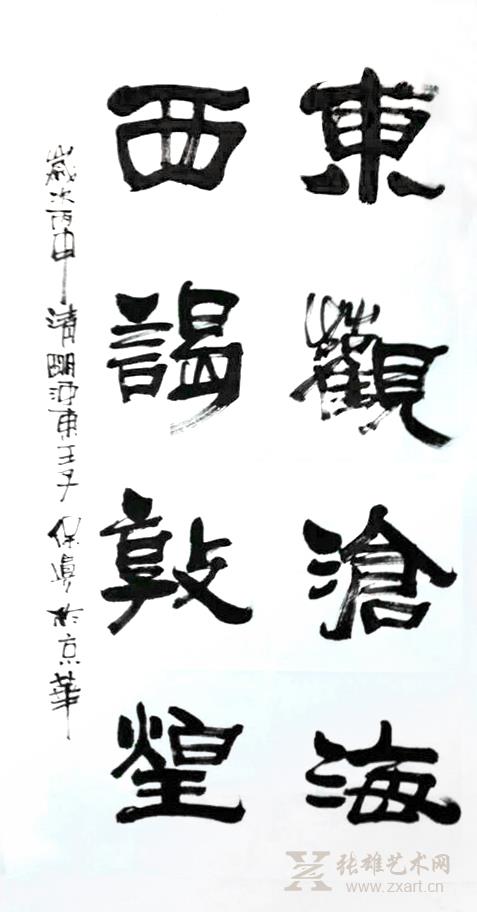 東觀滄海
西謁敦煌
歲次丙申清明沖東王子保真於京華
张雄艺术网
www.zxart.cn